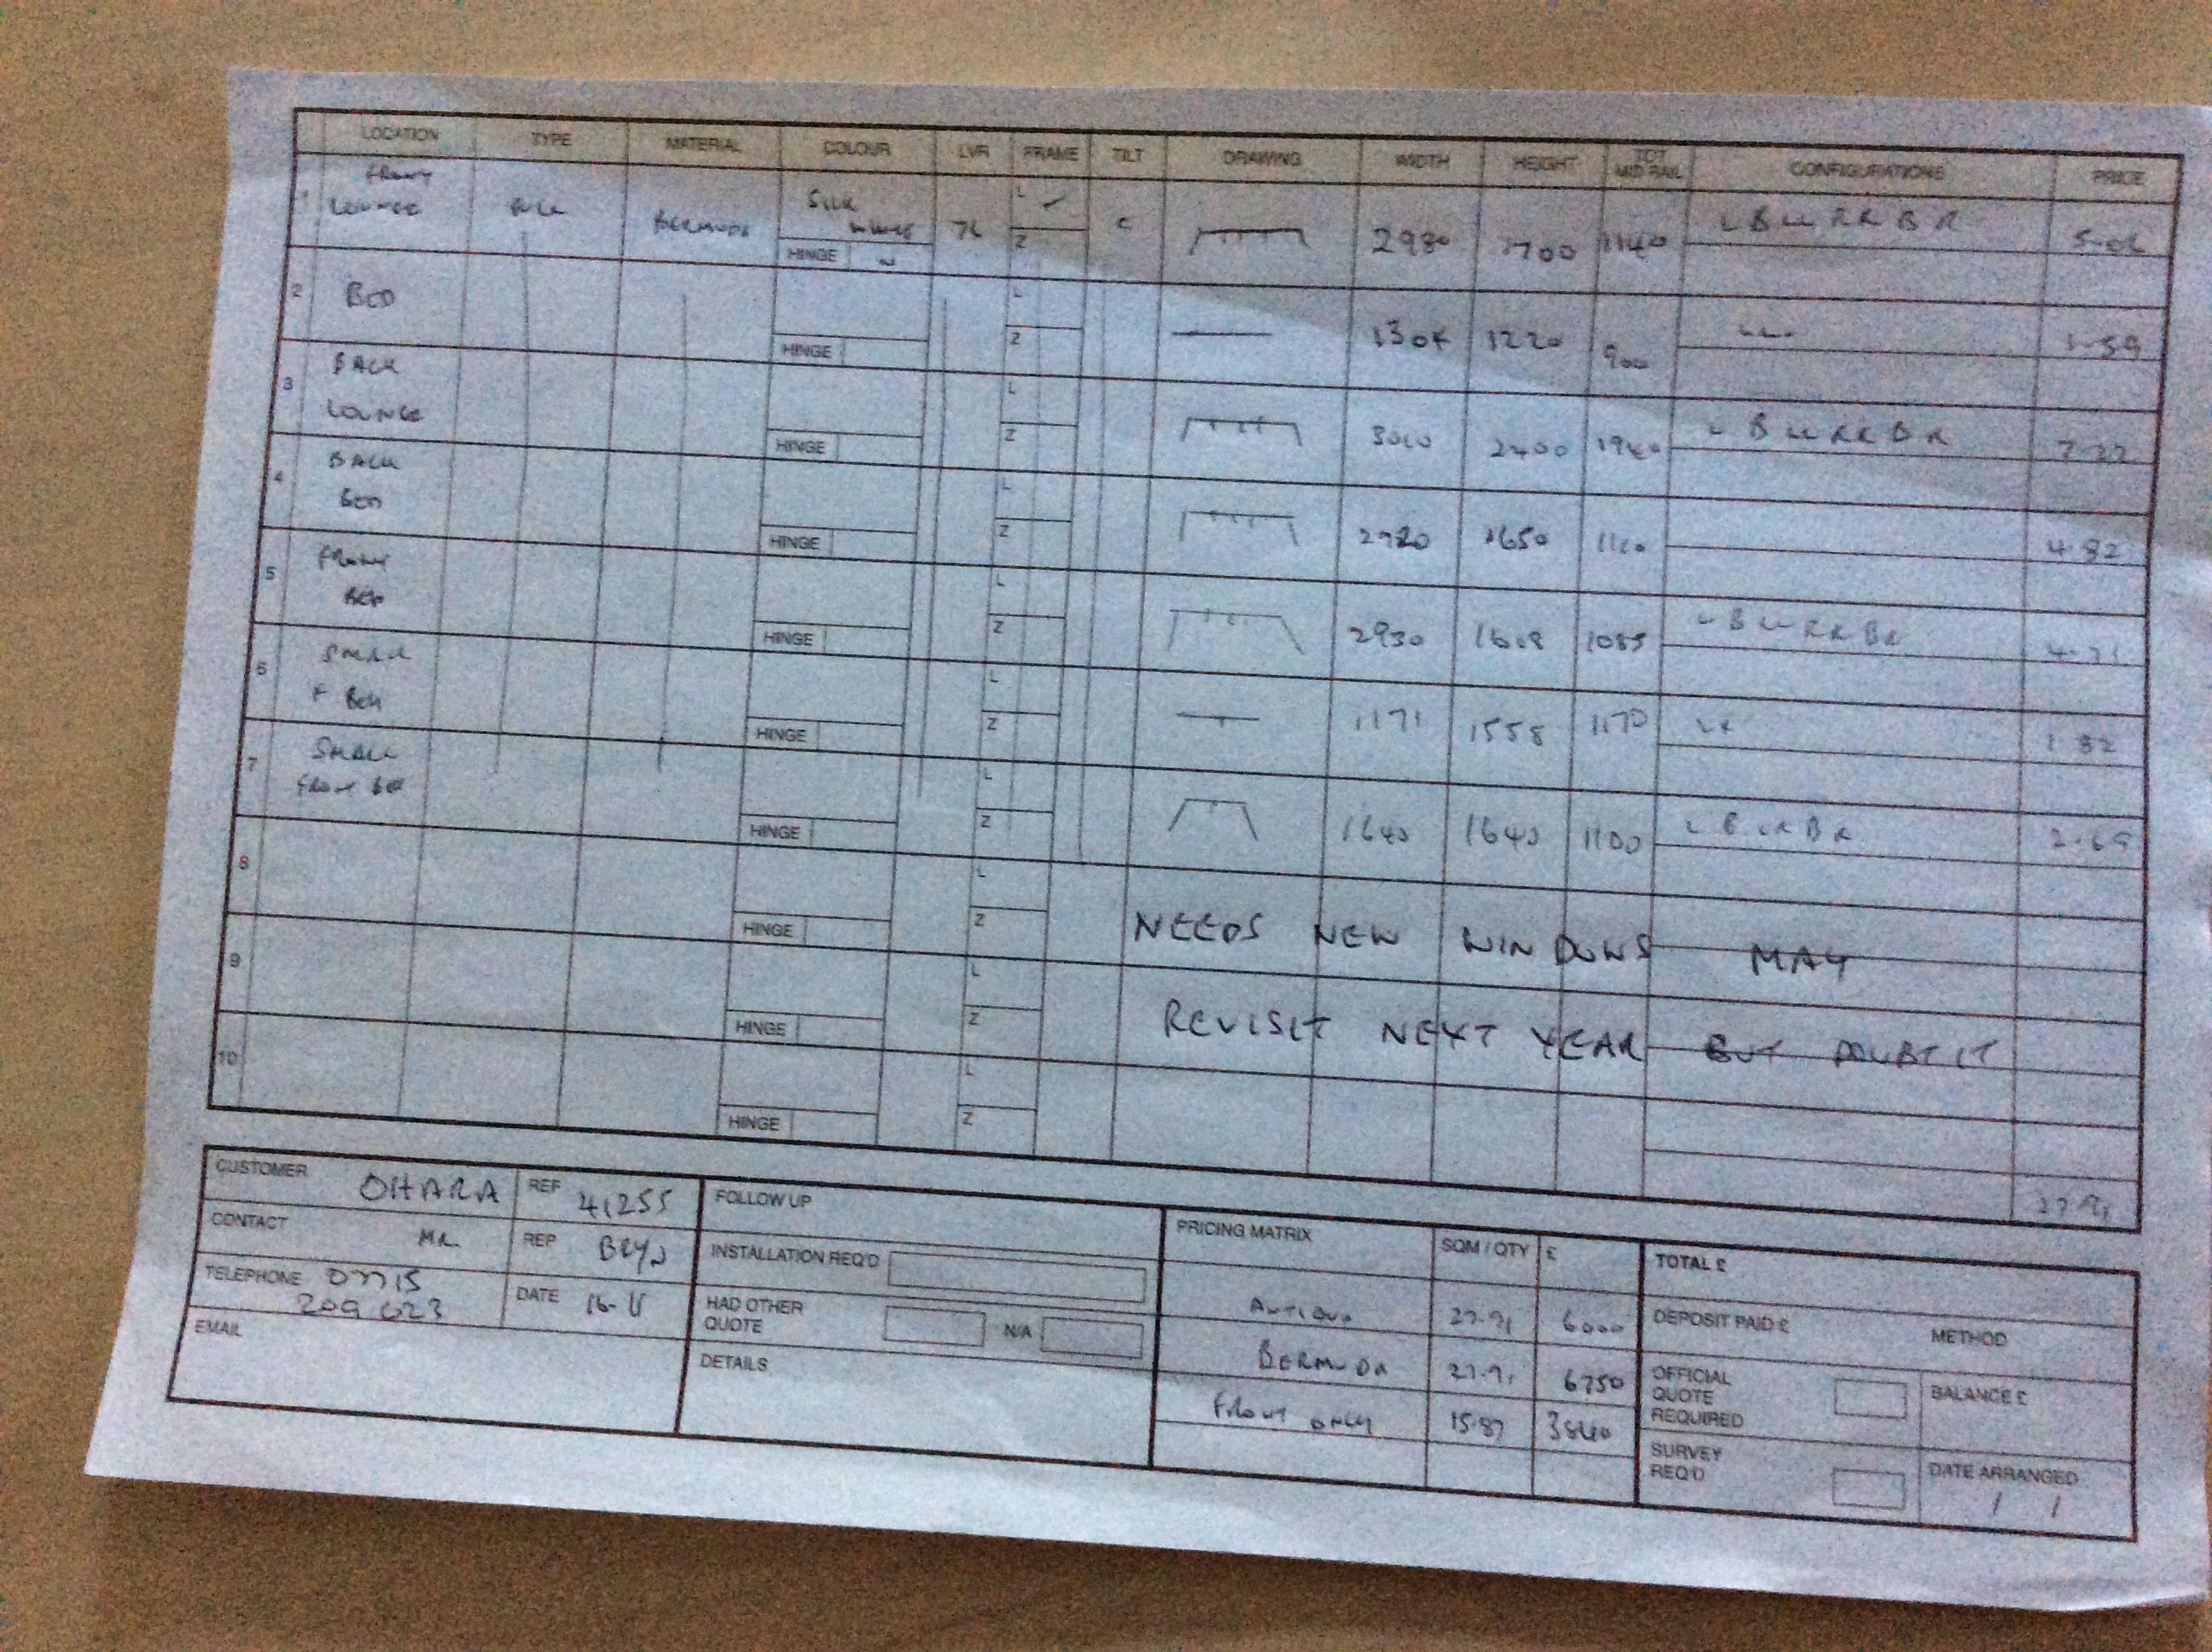 LOCATION TYPE MATERIAL COLOUR LVR FRAME TILT DRAWING WIDTH HEIGHT TOT MID RAIL CONFIGURATIONS PRICE
1 FRONT LOUNGE FULL BERMUDA SILK WHITE 76 L Z C 2980 1700 1140 L B LL RR B R 5.06
HINGE
2 BED L Z 1304 1220 900 1.59
HINGE
3 BACK LOUNGE L Z 3010 2400 1940 L B LL RR B R 7.22
HINGE
4 BACK BED L Z 2920 1650 1110 4.82
HINGE
5 FRONT BED L Z 2930 1608 1085 L B LL RR B R 4.71
HINGE
6 SMALL F BED L Z 1171 1558 1170 LR 1.82
HINGE
7 SMALL FRONT BED L Z 1640 1640 1100 L B LR B R 2.69
HINGE
8 L Z
HINGE
NEEDS NEW WINDOWS MAY
9 L Z
HINGE
REVISIT NEXT YEAR BUT DOUBT IT
10 L Z
HINGE
27.91
CUSTOMER OHARA REF 41255
CONTACT MR REP
TELEPHONE 07715 209 023 DATE 16-11
EMAIL
FOLLOW UP
INSTALLATION REQ'D
HAD OTHER QUOTE N/A
DETAILS
PRICING MATRIX SQM / QTY £
ANTIGUA 27.91 6000
BERMUDA 27.91 6750
FRONT ONLY 15.87 3840
TOTAL £
DEPOSIT PAID £ METHOD
OFFICIAL QUOTE REQUIRED BALANCE £
SURVEY REQ'D DATE ARRANGED
/ /